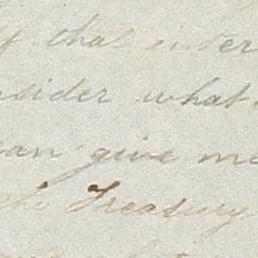 of that inter
nsider what
can give me
the Treasury